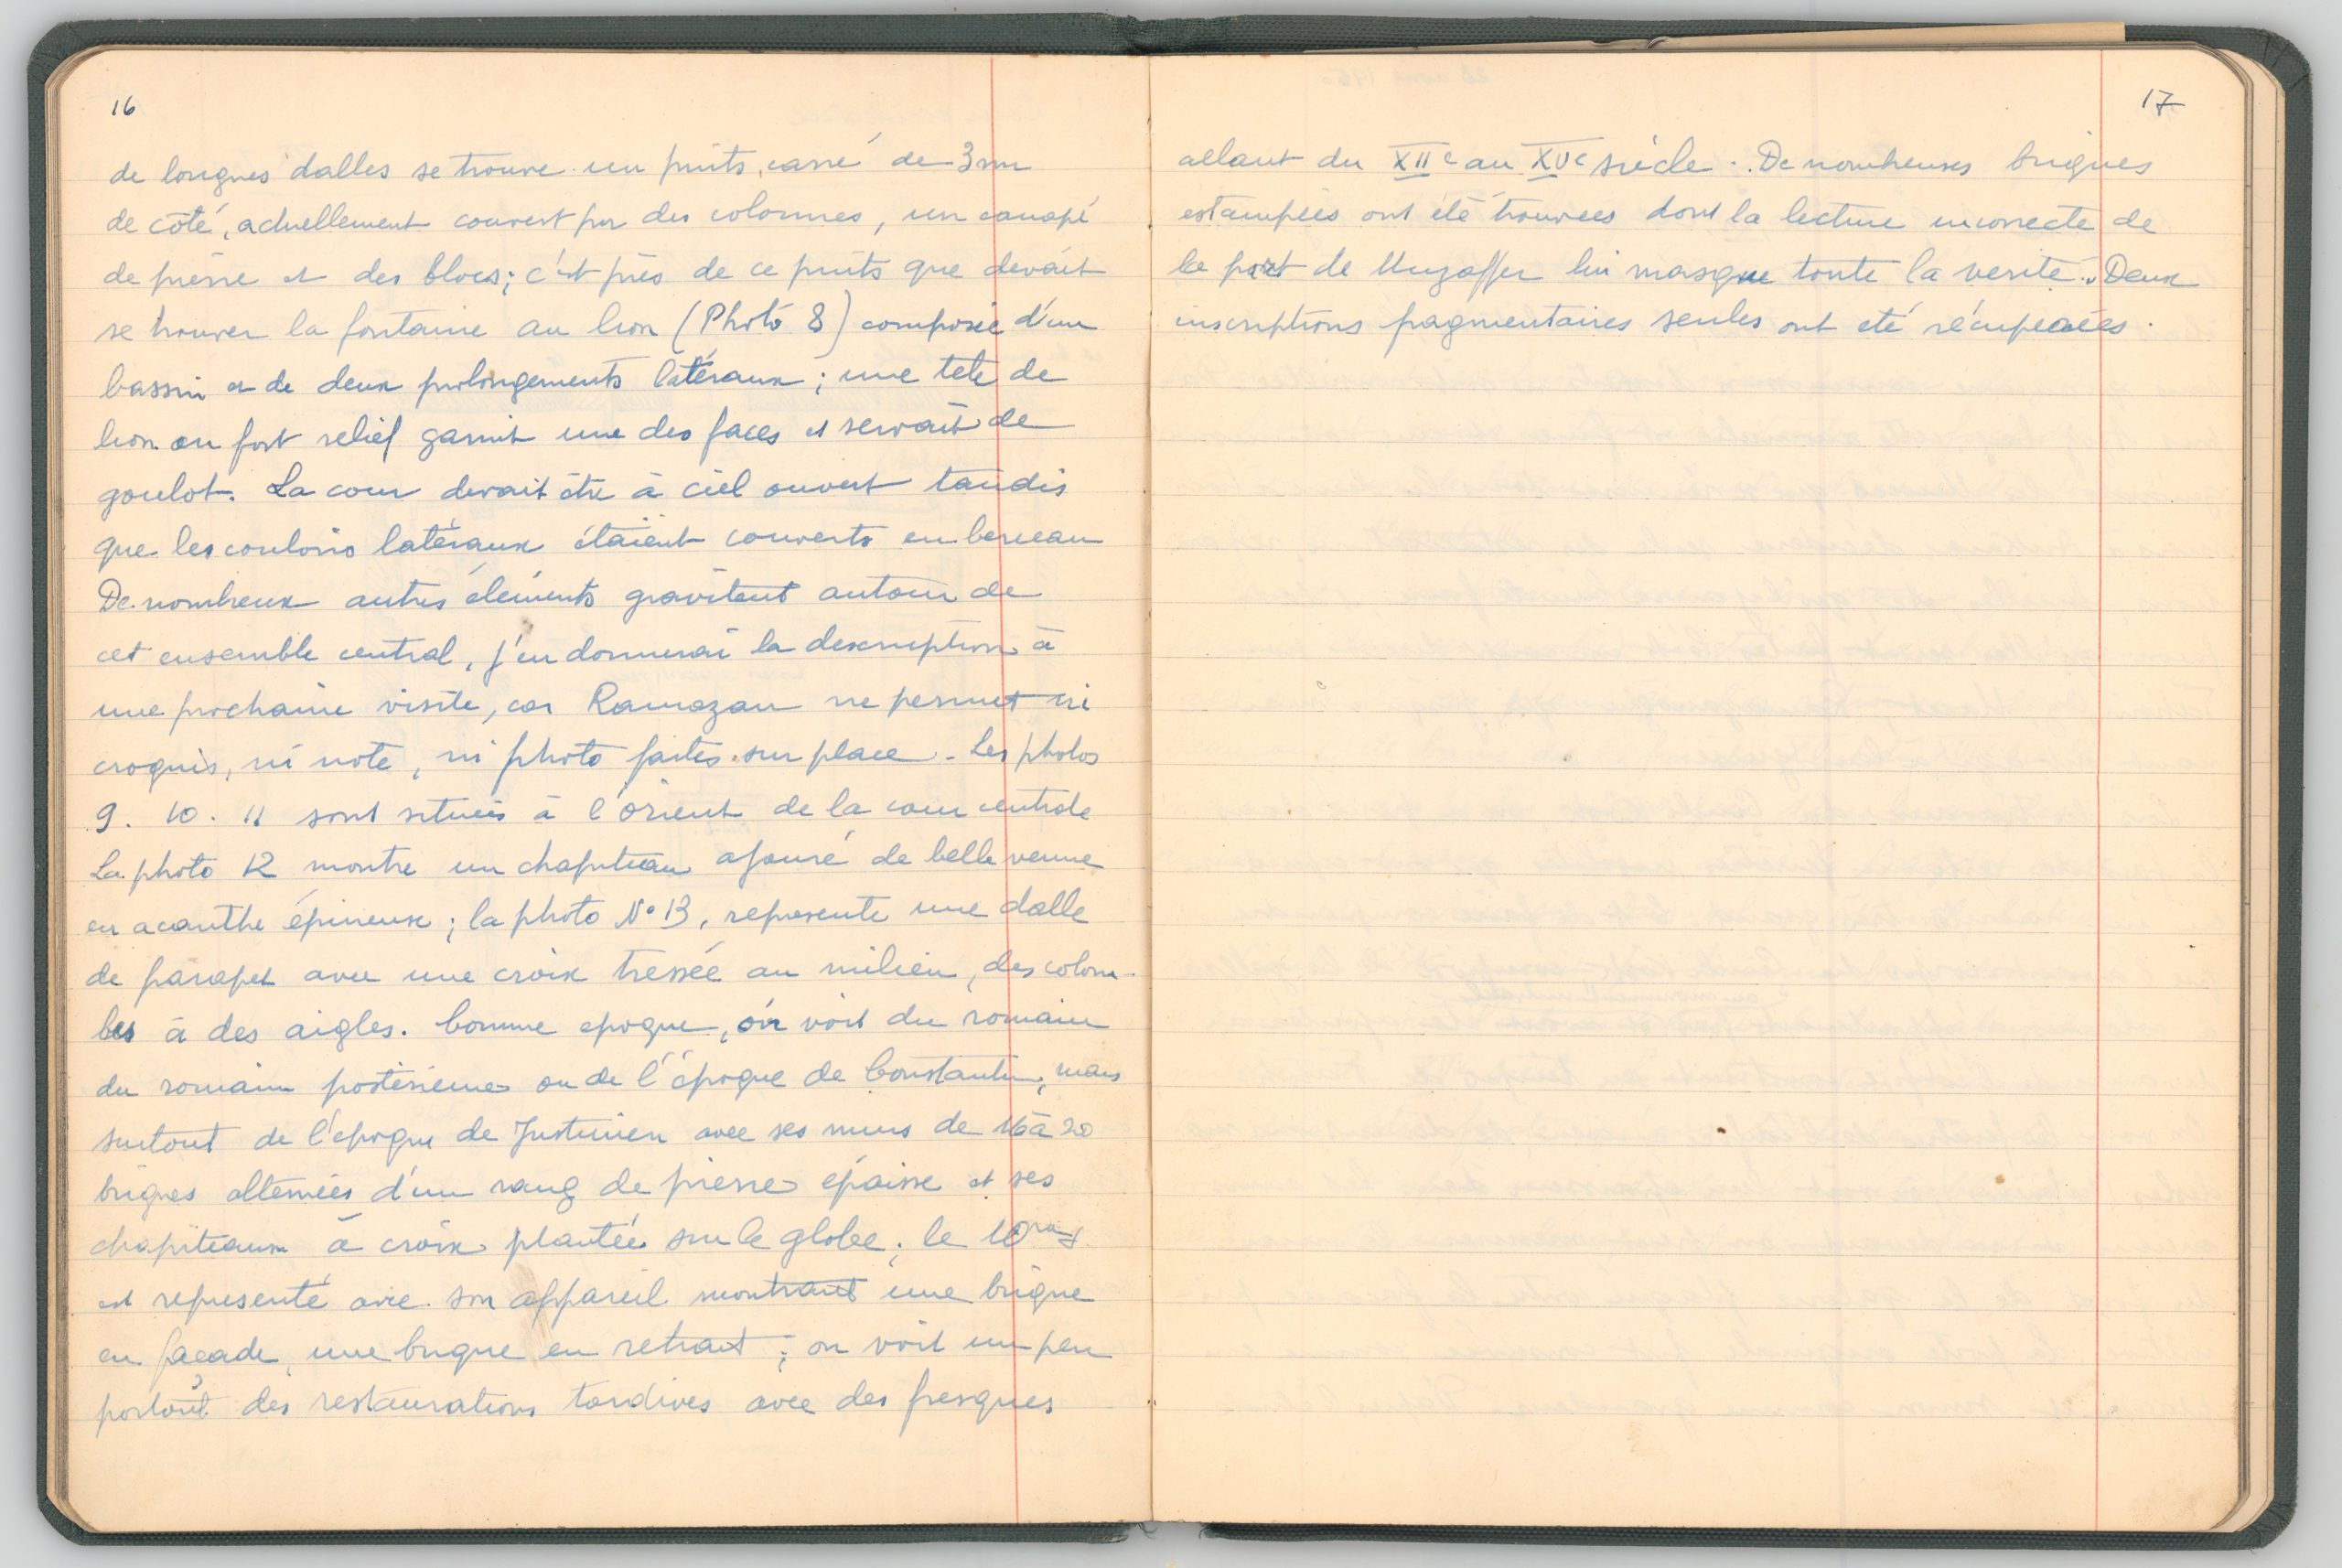 16
de longues dalles se trouve un puits, carré de 3 m
de côté, actuellement couvert par des colonnes, un canapé
de pierre et des blocs; c'est près de ce puits que devait
se trouver la fontaine au lion (Photo 8) composée d'un
bassin et de deux prolongements latéraux; une tete de
lion en fort relief garnit une des faces et servait de
goulot. La cour devait être à ciel ouvert tandis
que les couloirs latéraux étaient couverts en berceau
De nombreux autres élements gravitent autour de
cet ensemble central, j'en donnerai la description à
une prochaine visite, car Ramazan ne permet ni
croquis, ni note, ni photo faites sur place. Les photos
9. 10. 11 sont situées à l'orient de la cour centrale
La photo 12 montre un chapiteau ajouré de belle venue
en acanthe épineuse; la photo No 13, represente une dalle
de parapet avec une croix tressée au milieu, des colom-
bes à des aigles. Comme epoque, on voit du romain
du romain postérieur ou de l'époque de Constantin, mais
surtout de l'epoque de Justinien avec ses murs de 16 à 20
briques alternées d'un rang de pierre épaisse et ses
chapiteaux à croix plantée sur le globe; le 10
est representé avec son appareil montrant une brique
en façade, une brique en retrait; on voit un peu
partout des restaurations tardives avec des fresques
17
allant du XIIe au XVe siècle. De nombeuses briques
estampées ont été trouvees dont la lecture incorrecte de
la part de Muzaffer lui masque toute la verite. Deux
inscriptions fragmentaires seules ont eté récupérées.